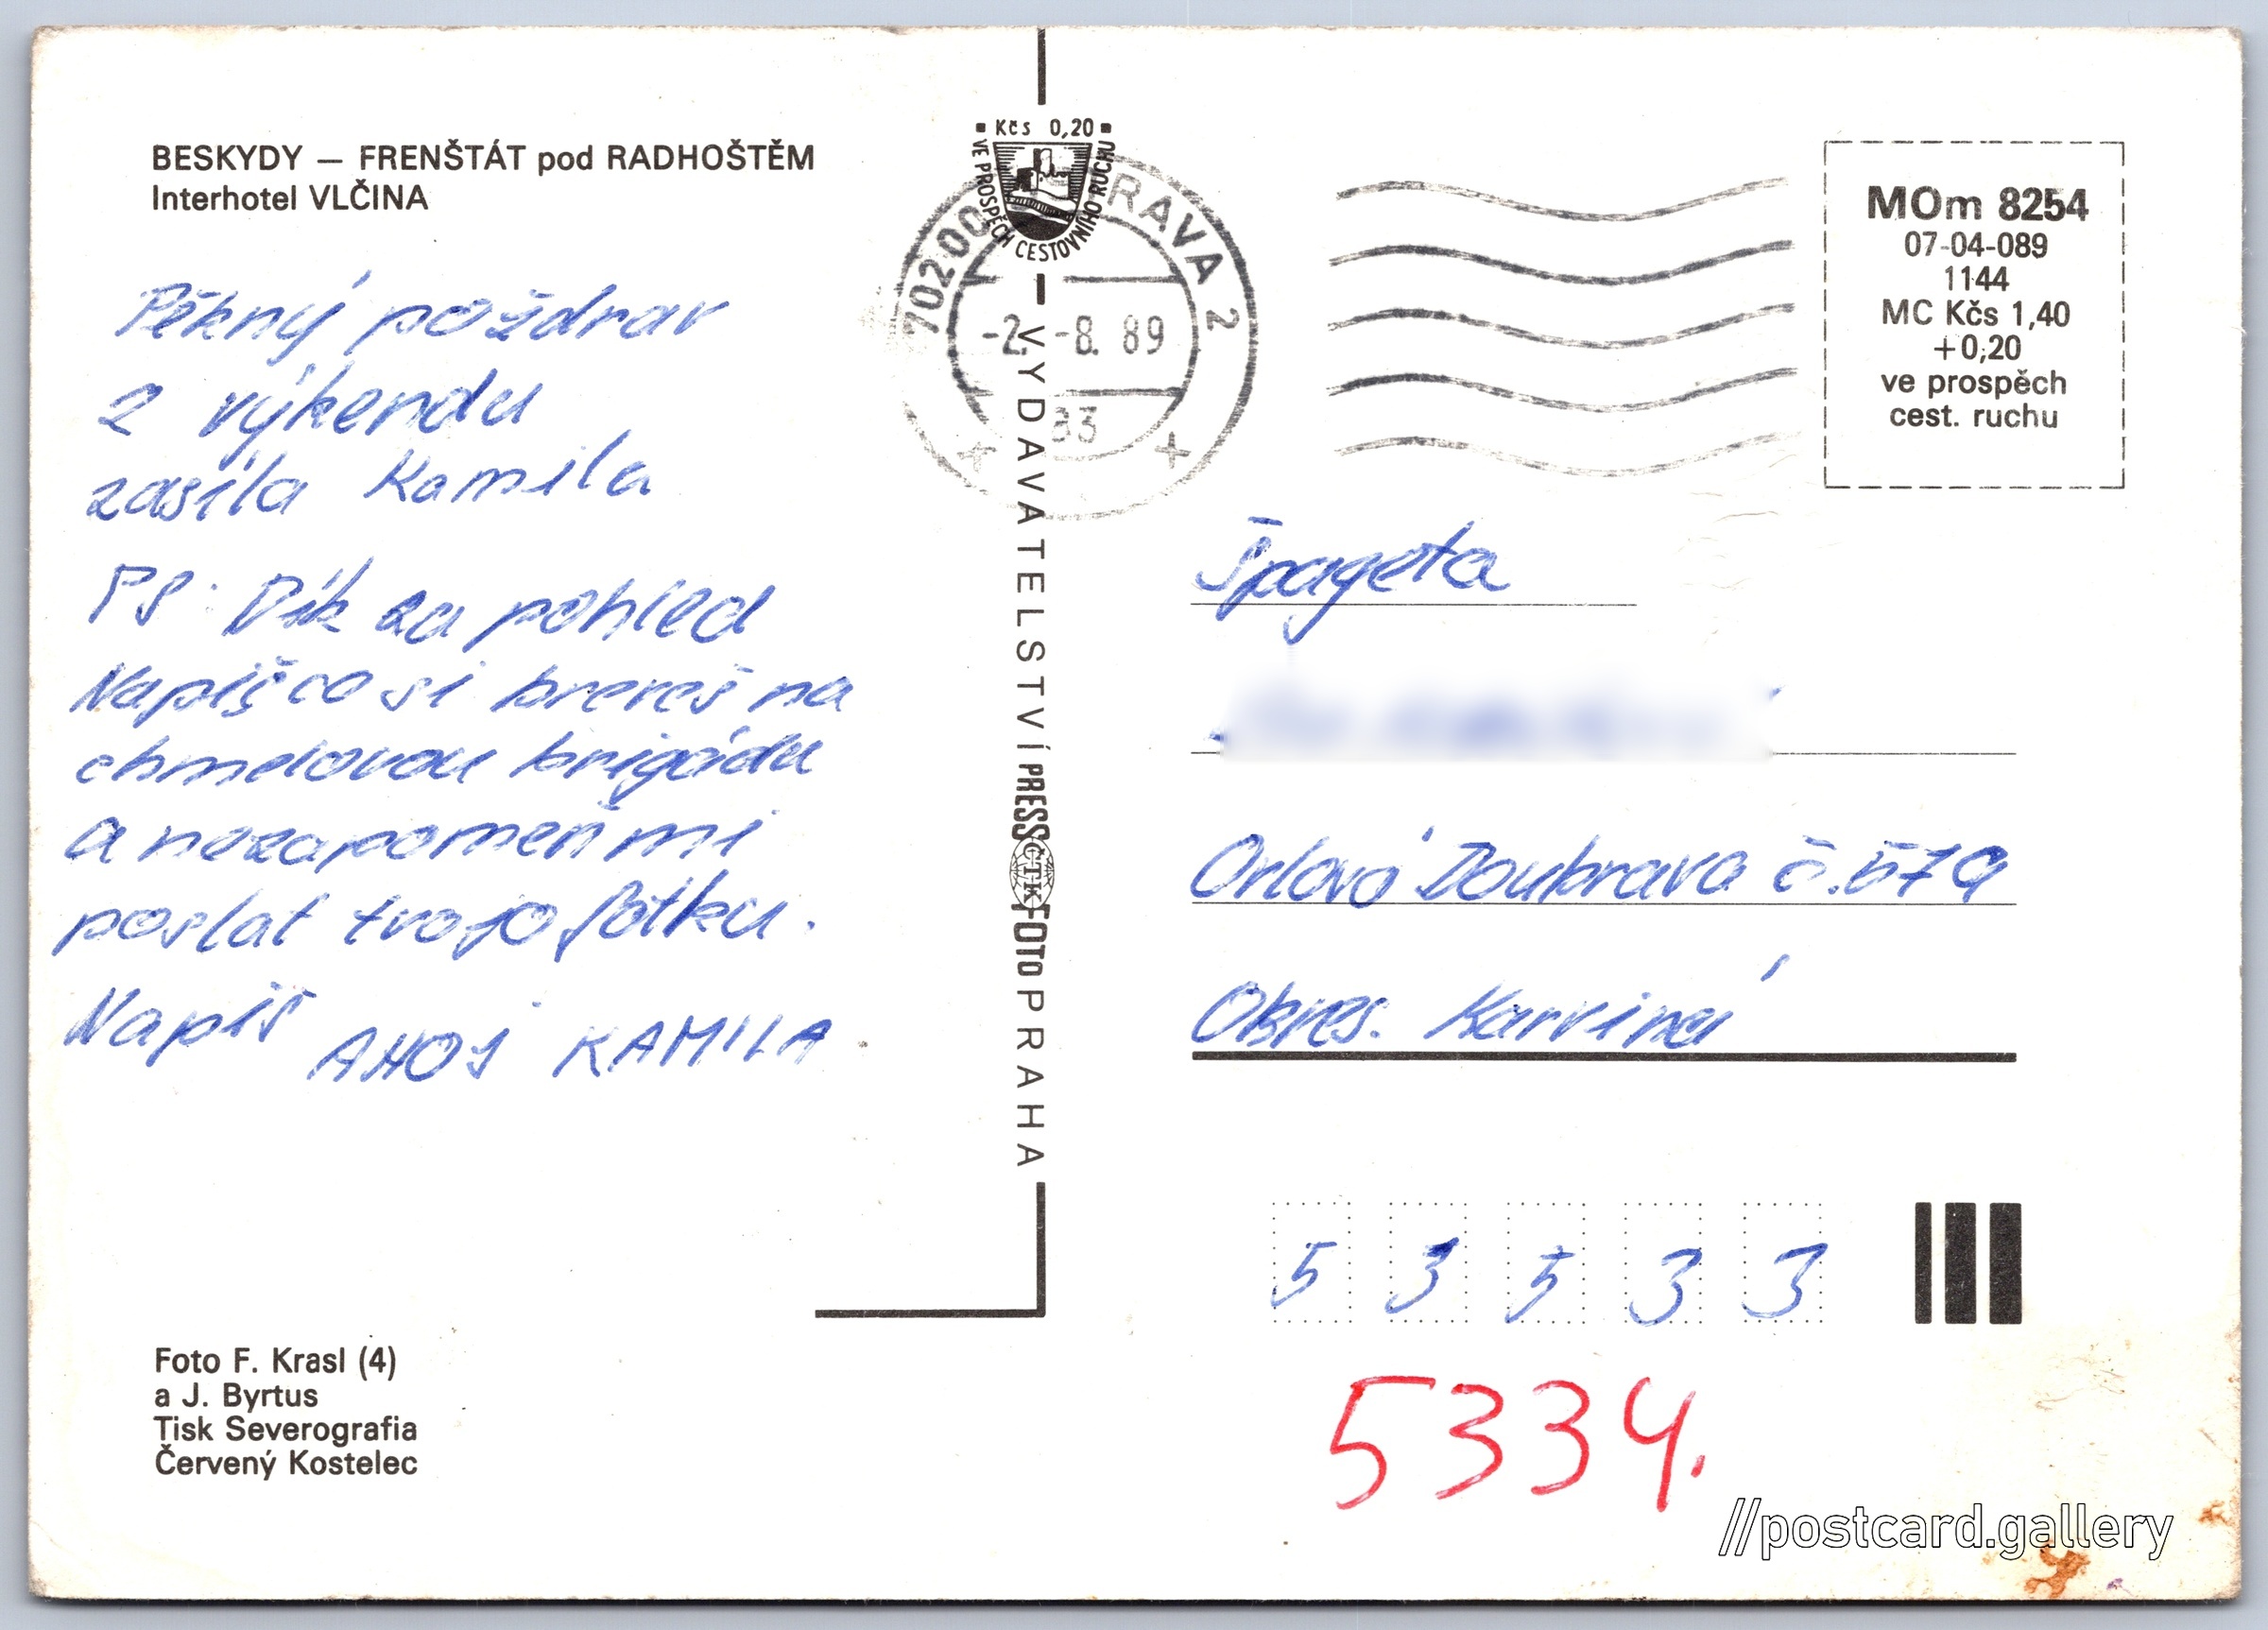 BESKYDY — FRENŠTÁT pod RADHOŠTĚM
Interhotel VLČINA
Pěkný pozdrav
z výkendu
zasílá Kamila
PS: Dík za pohled
Napiš co si bereš na
chmelovou brigádu
a nezapomeň mi
poslat tvojo fotku.
Napiš AHOJ KAMILA
Foto F. Krasl (4)
a J. Byrtus
Tisk Severografia
Červený Kostelec
Kčs 0,20
VE PROSPĚCH CESTOVNÍHO RUCHU
702 00 RAVA 2
-2. -8. 89
33
VYDAVATELSTVÍ PRESSFOTO PRAHA
ČTK
MOm 8254
07-04-089
1144
MC Kčs 1,40
+0,20
ve prospěch
cest. ruchu
Špageta
Orlová Doubrava č. 579
Okres. Karviná
5 3 5 3 3
5334.
//postcard.gallery